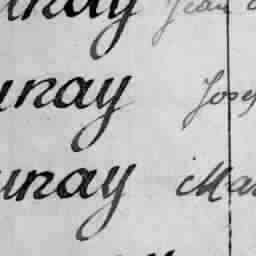 unay Jean
unay Jose
unay Mar